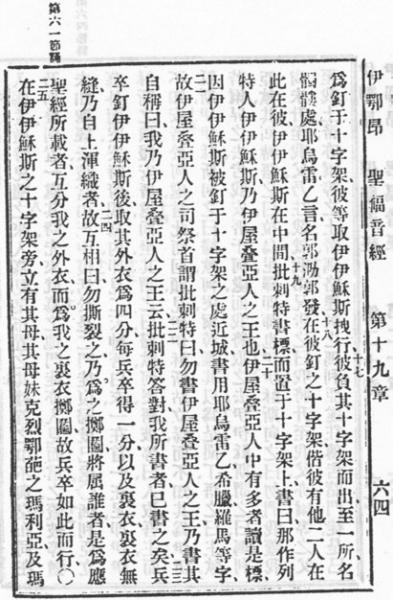 伊鄂昂 聖福音經 第十九章 六四
爲釘于十字架、彼等取伊伊穌斯拽行、十七彼負其十字架而出至一所名
髑髏處、耶烏雷乙言名郭泐郭發、十八在彼釘之十字架、偕彼有他二人在
此在彼、伊伊穌斯在中間、十九批剌特書標而置于十字架上書曰那作列
特人伊伊穌斯、乃伊屋疊亞人之王也、二十伊屋疊亞人中有多者讀是標、
因伊伊穌斯被釘于十字架之處近城、書用耶烏雷乙希臘羅馬等字、
二一故伊屋疊亞人之司祭首謂批剌特曰、勿書伊屋疊亞人之王、乃書其
自稱曰、我乃伊屋疊亞人之王云、二二批剌特答對我所書者已書之矣、二三兵
卒釘伊伊穌斯後、取其外衣爲四分、每兵卒得一分、以及裏衣、裏衣無
縫、乃自上渾織者、二四故互相曰、勿撕裂之、乃爲之擲鬮、將屬誰者、是爲應
聖經所載者、互分我之外衣、而爲我之裏衣擲鬮、故兵卒如此而行、〇
二五在伊伊穌斯之十字架旁、立有其母、其母妹克烈鄂葩之瑪利亞、及瑪
第六一